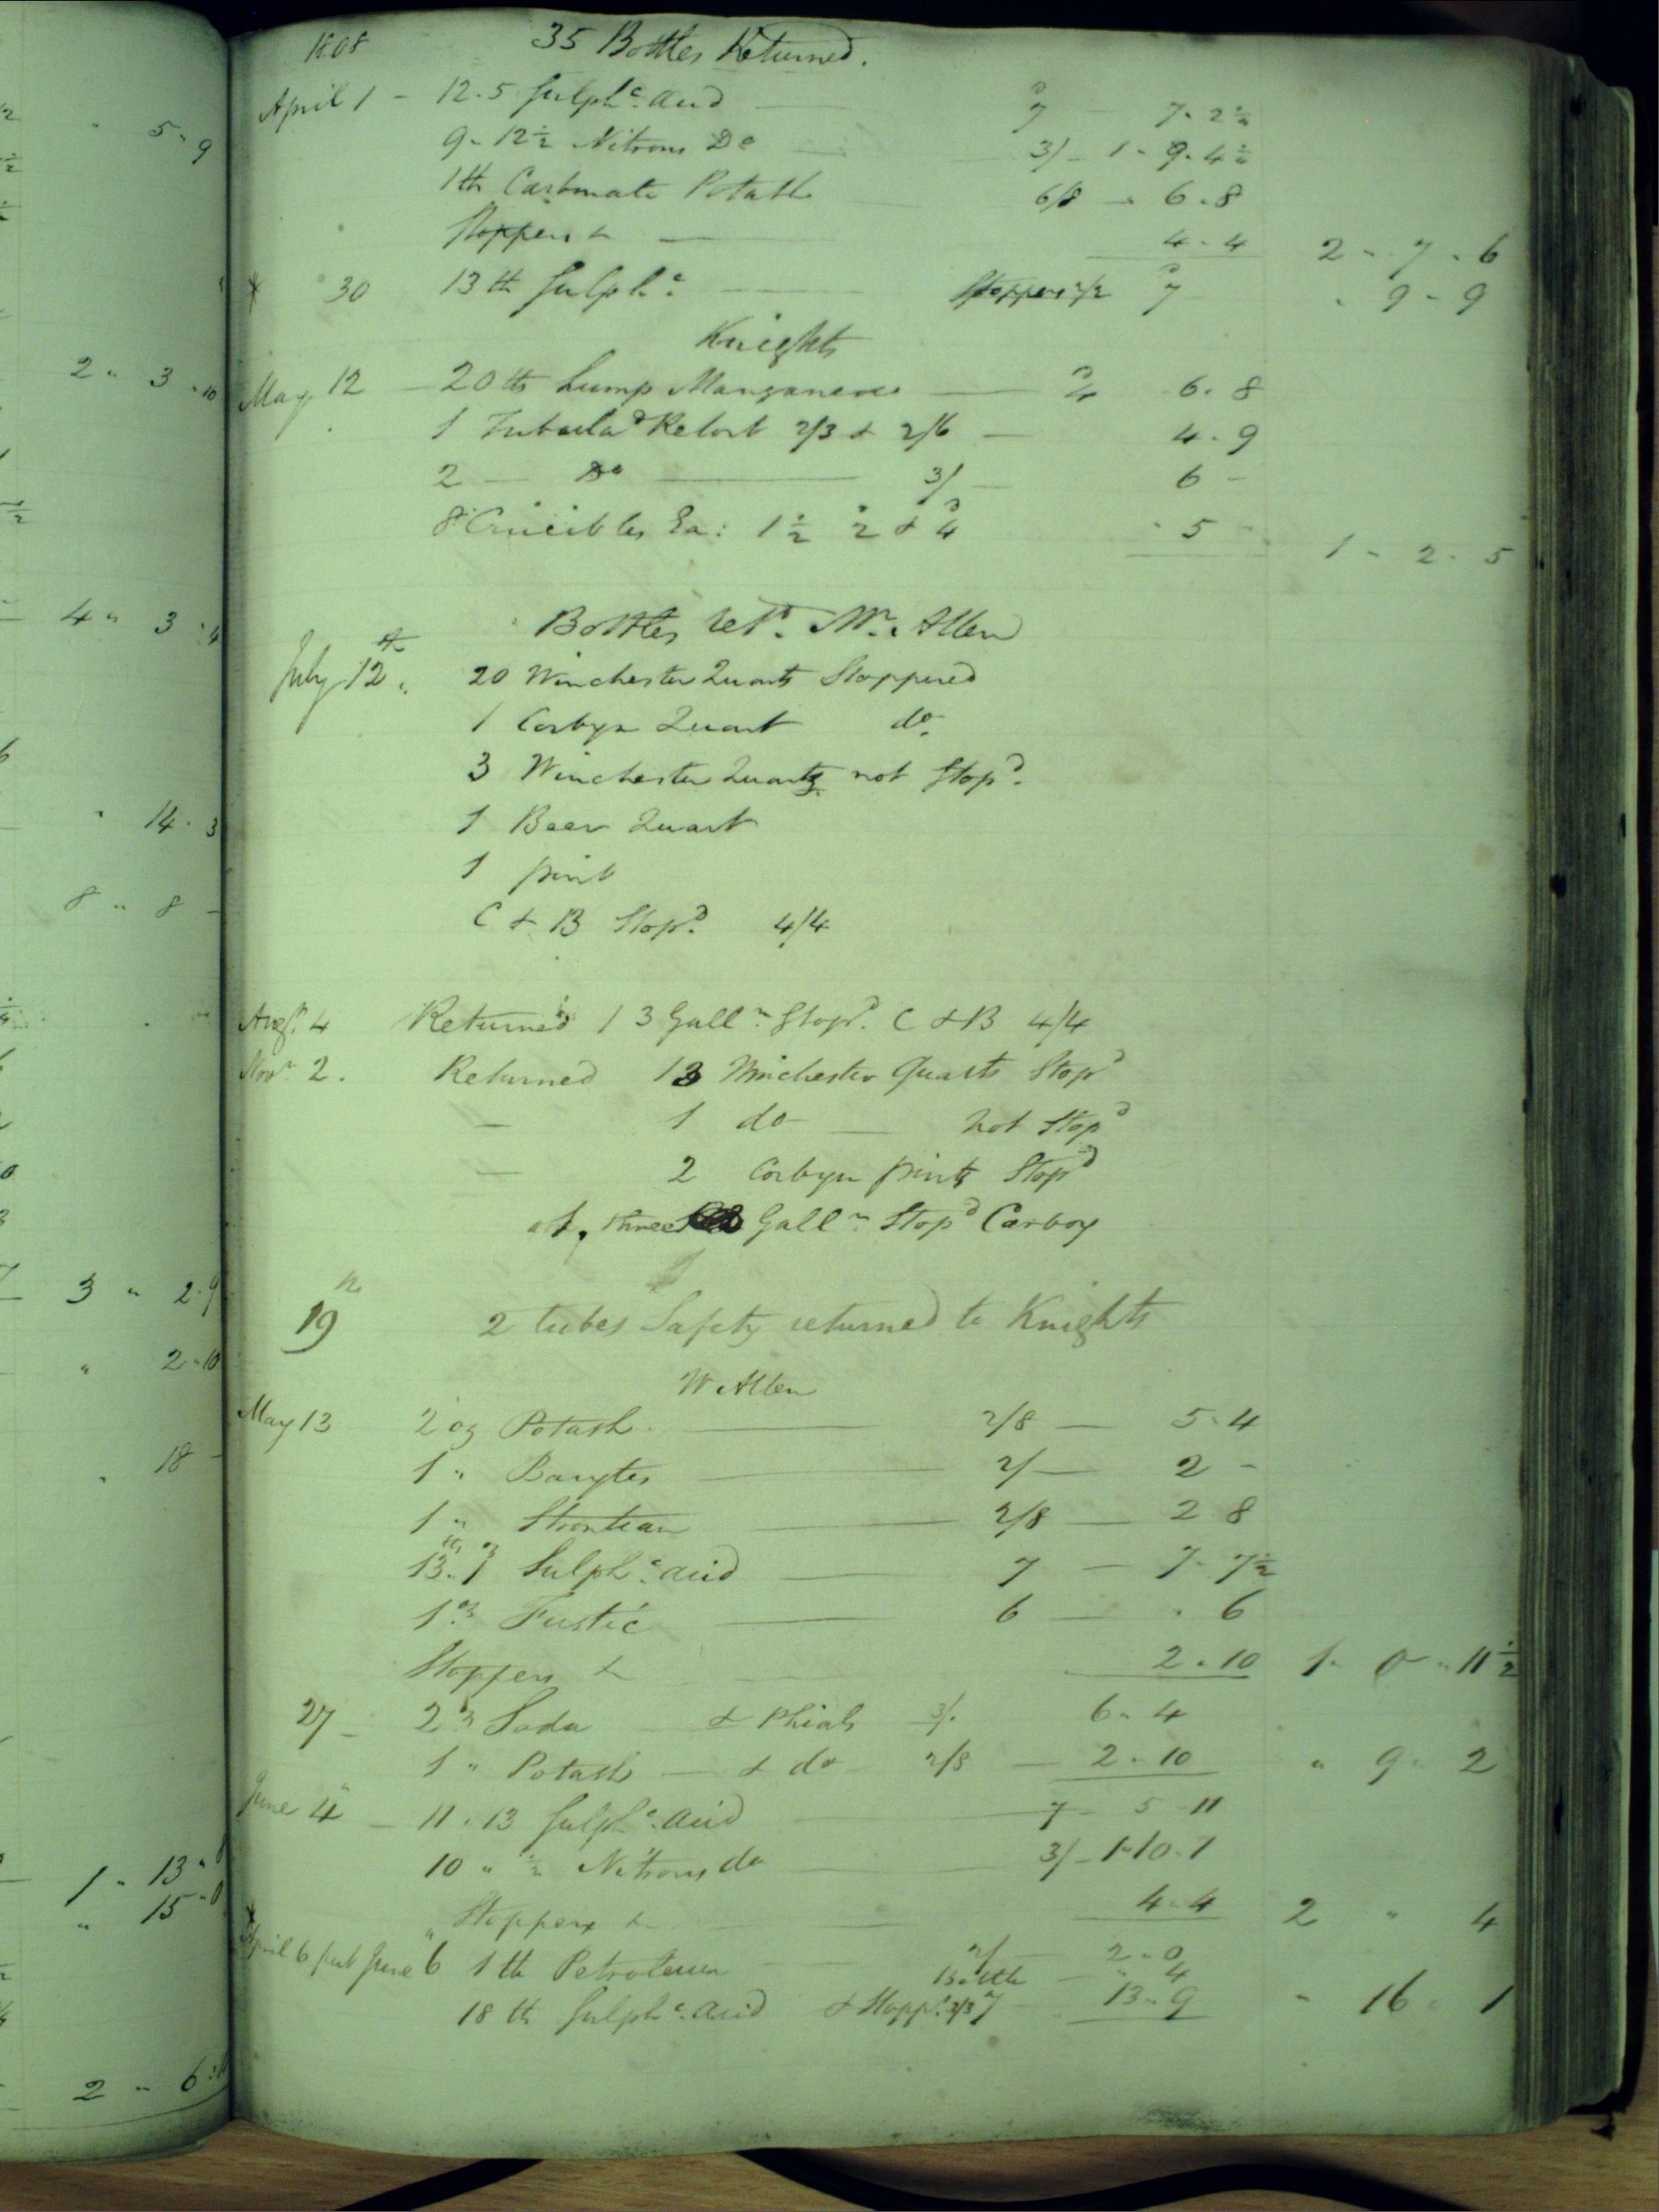 5 " 9
2 " 3 " 10
4 " 3 " 4
" 14 . 3
8 " 8 -
3 " 2 . 9
" 2 " 10
" 18 -
1 " 13 "
" 15 " 0
2 " 6
1808 35 Bottles Returned.
April 1 - 12.5 Sulphc. Acid — 7d — 7 . 2½
9 - 12½ Nitrous Do — 3/ - 1 - 9 . 4½
1 lb Carbonate Potash — 6/8 - 6 . 8
Stoppers & — 4 . 4 2 - 7 . 6
30 13 lb Sulphc. — Stoppers 2/2 7d " 9 - 9
Knights
May 12 - 20 lb Lump Manganese — 4d 6 . 8
1 Tubulad Retort 2/3 & 2/6 — 4 . 9
2 — Do — 3/ — 6 -
8 Crucibles Ea: 1½ 2 & 4d " 5 - 1 - 2 . 5
Bottles retd. Mr. Allen
July 12th. 20 Winchester Quarts Stoppered
1 Corbyn Quart do.
3 Winchester Quarts not Stopd.
1 Beer Quart
1 pint
C & B Stopd. 4/4
Augt. 4 Returned 1 3 Galln. Stopd. C & B 4/4
Novr. 2. Returned 13 Winchester Quarts Stopd
— 1 do — not Stopd
— 2 Corbyn pints Stopd
1, three Galln Stopd Carboy
19th 2 tubes Safety returned to Knights
W Allen
May 13 2 oz Potash — 2/8 — 5 . 4
1 " Barytes — 2/ — 2 -
1 " Strontian — 2/8 — 2 8
13 lb. 1 oz Sulphc. acid — 7 — 7 . 7½
1 oz. Fustic — 6 — . 6
Stoppers & — 2 . 10 1 " 0 " 11½
27 - 2 ʒ Soda — & Phials 3/. 6 " 4
1 " Potash — & do 2/8 — 2 . 10 " 9 " 2
June 4 — 11 . 13 Sulphc. Acid — 7 - 5 - 11
10 " ½ Nitrous do — 3/ - 1 . 10 . 1
" Stoppers & — 4 . 4 2 " 4
April 6 June 6 1 lb Petroleum — 2/ — 2 . 0
Bottle — " 4
18 lb Sulphc. Acid & Stoppd. 3/3 7 — 13 . 9 " 16 . 1